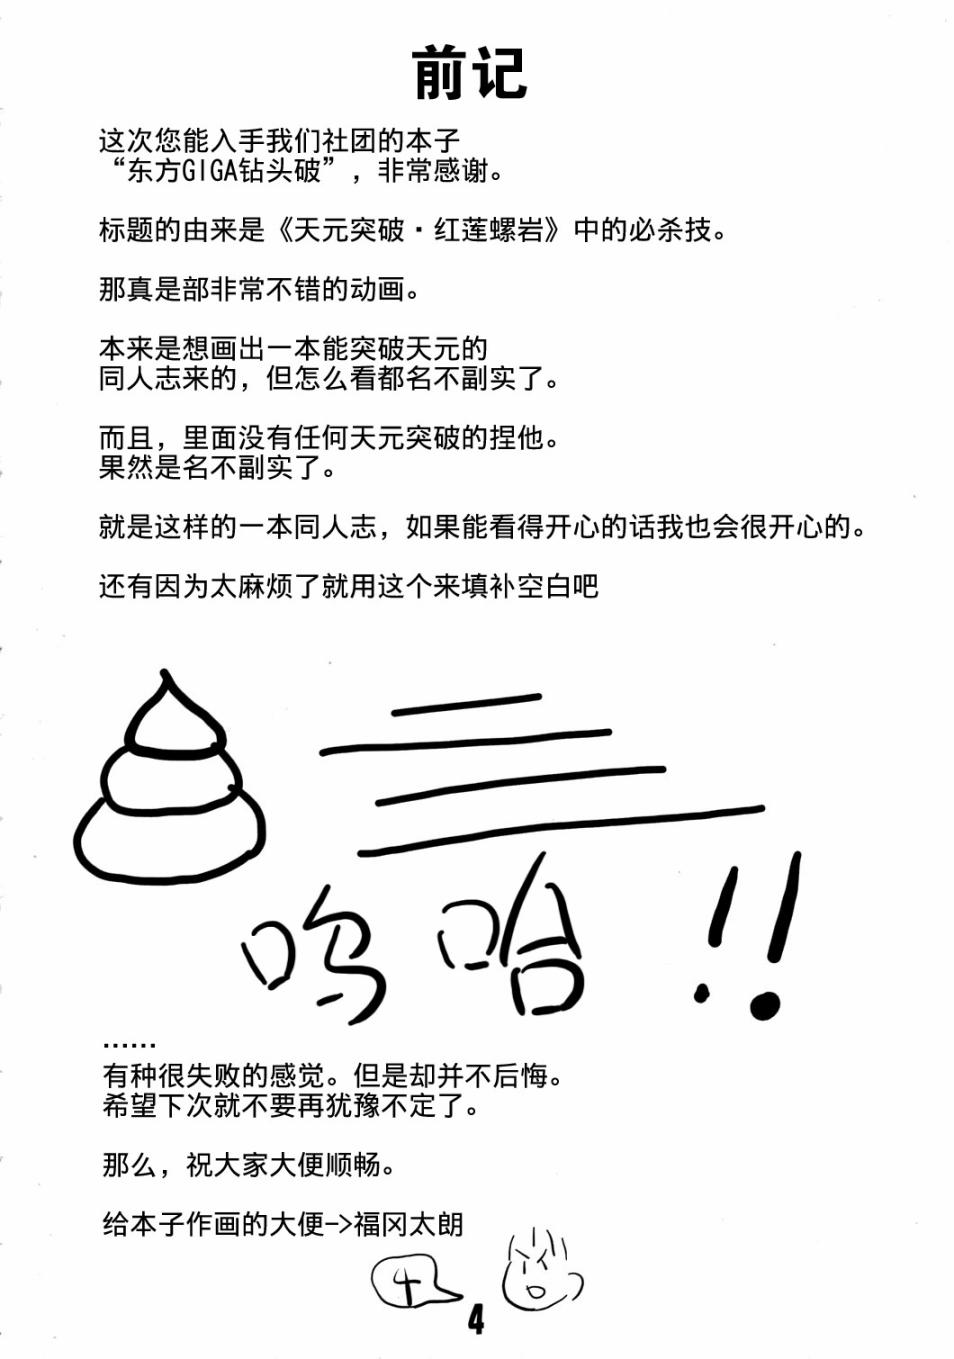 前记
这次您能入手我们社团的本子
“东方GIGA钻头破”，非常感谢。
标题的由来是《天元突破·红莲螺岩》中的必杀技。
那真是部非常不错的动画。
本来是想画出一本能突破天元的
同人志来的，但怎么看都名不副实了。
而且，里面没有任何天元突破的捏他。
果然是名不副实了。
就是这样的一本同人志，如果能看得开心的话我也会很开心的。
还有因为太麻烦了就用这个来填补空白吧
呜哈!!
……
有种很失败的感觉。但是却并不后悔。
希望下次就不要再犹豫不定了。
那么，祝大家大便顺畅。
给本子作画的大便->福冈太朗
4